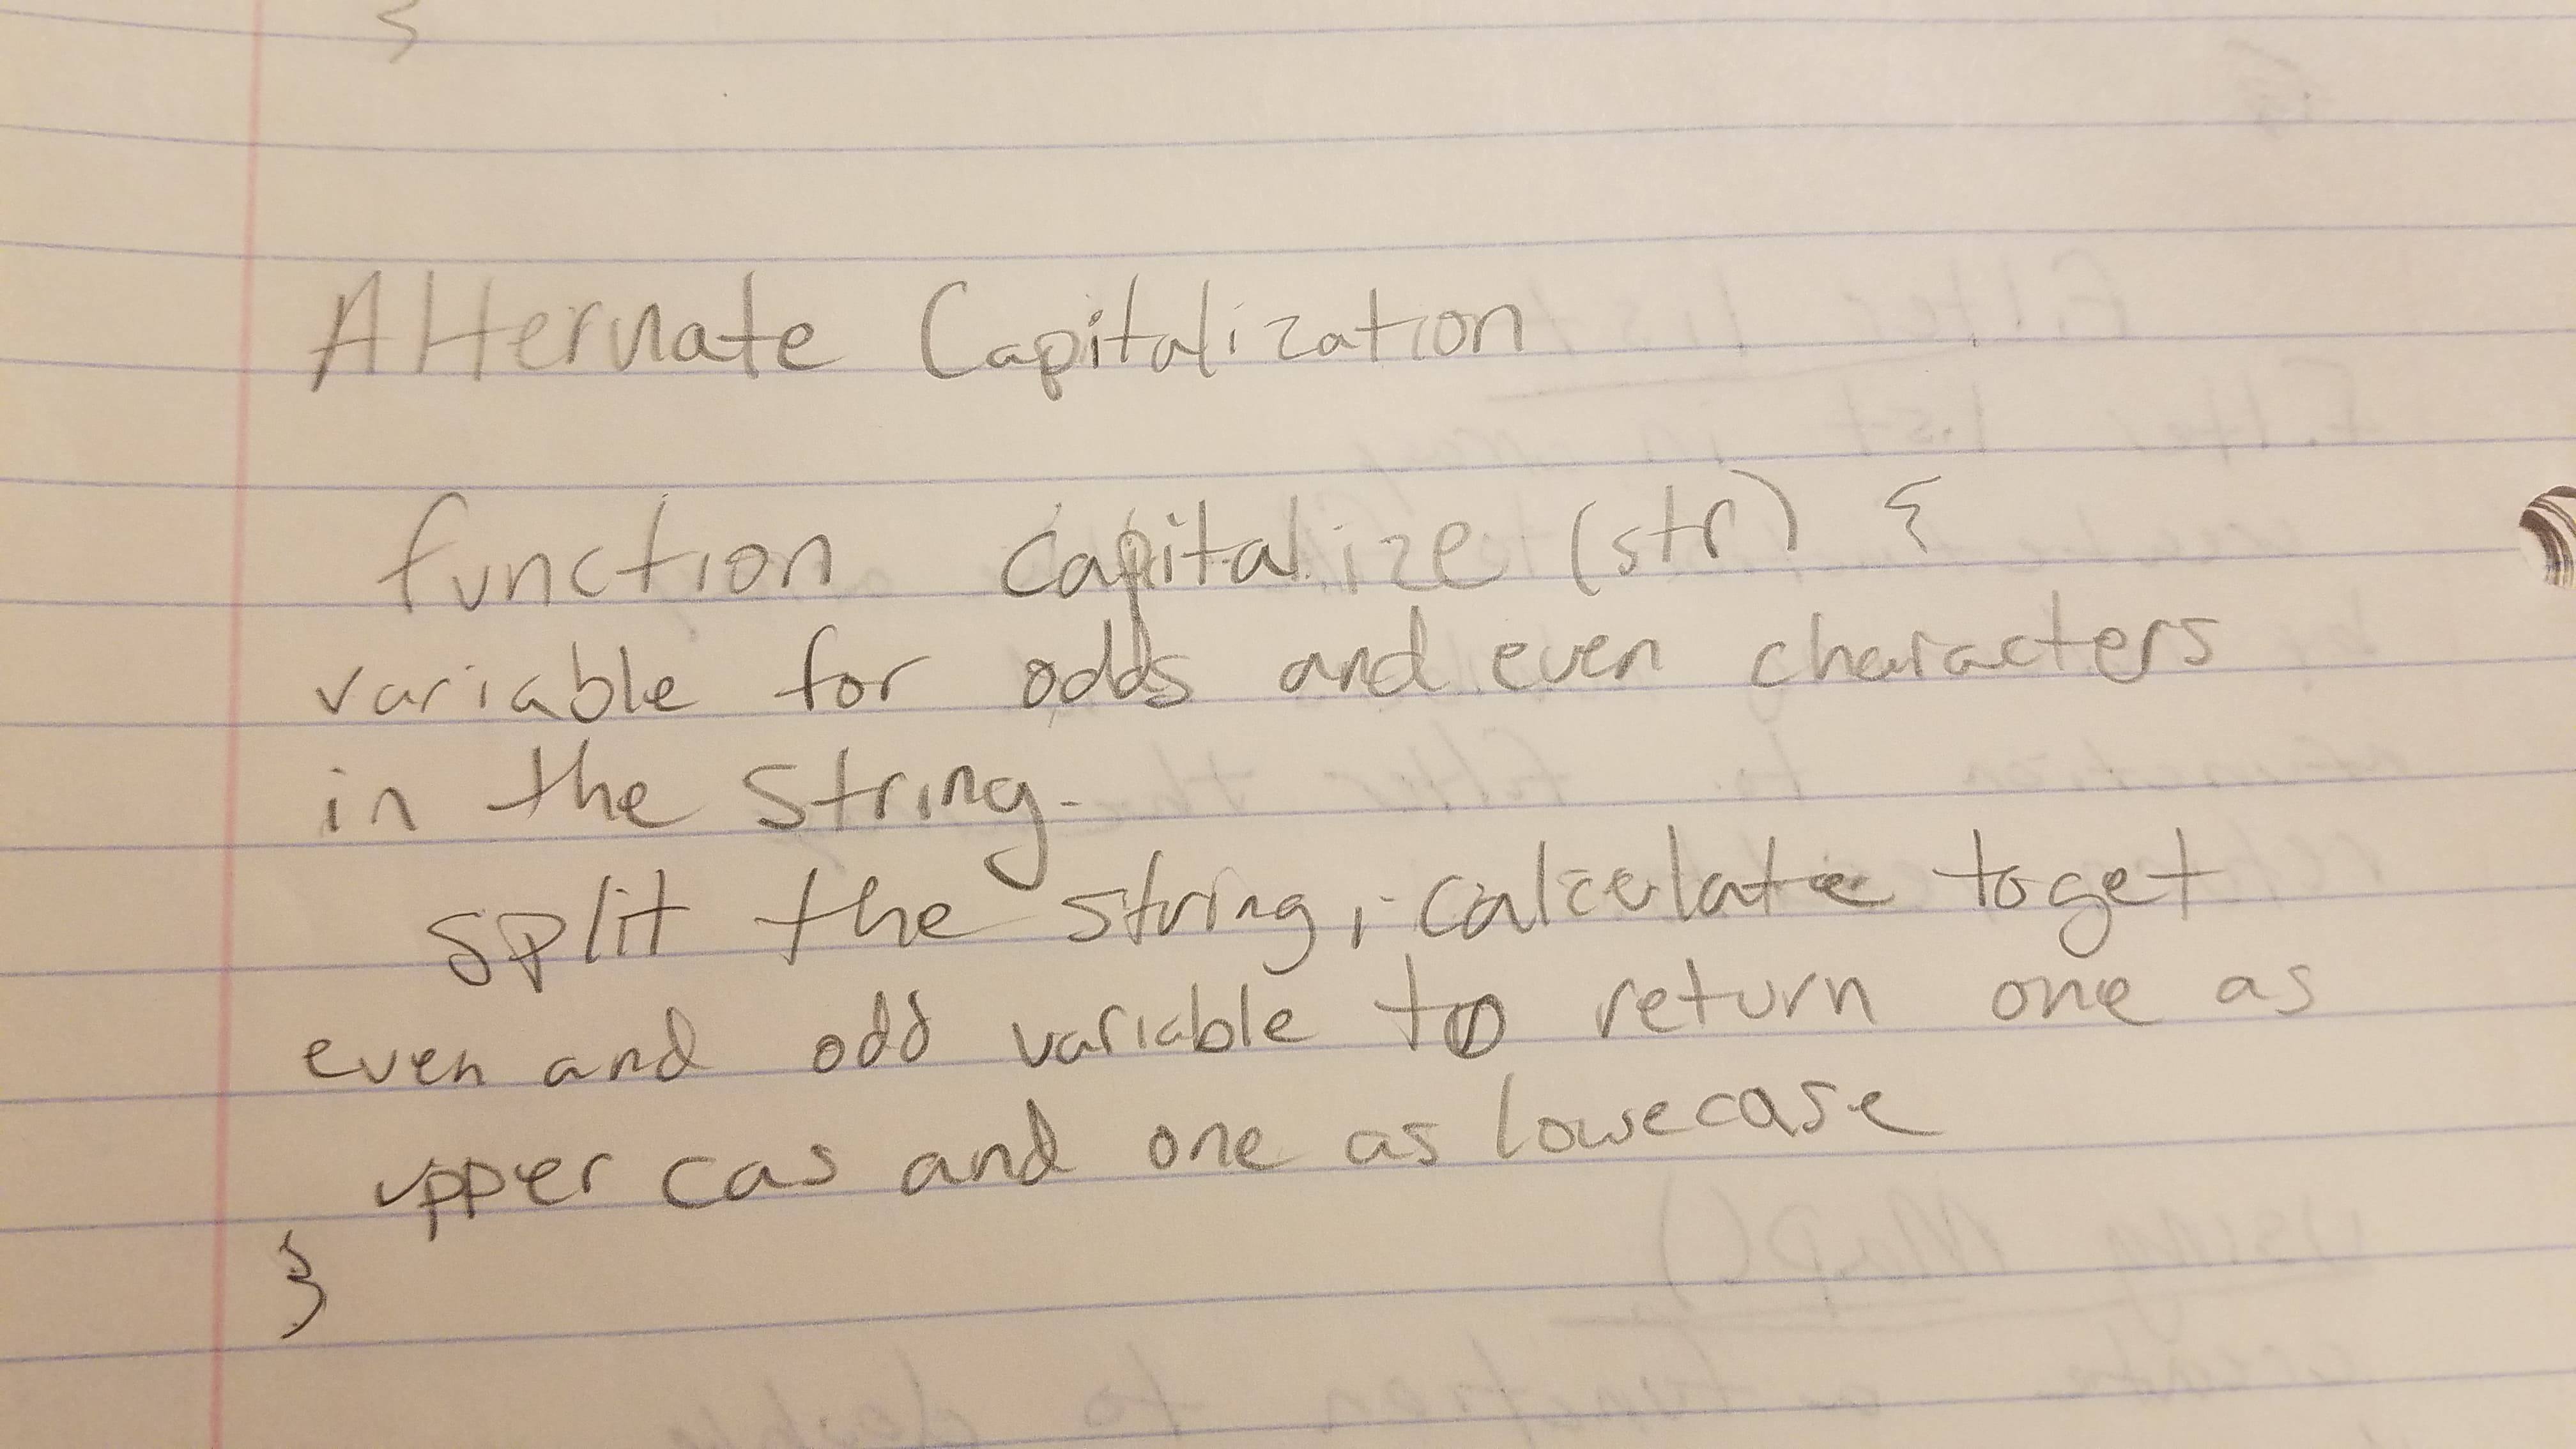 }
Alternate Capitalization
function capitalize (str) {
variable for odds and even characters
in the string.
split the string, calculate to get
even and odd variable to return one as
upper cas and one as lowecase
}